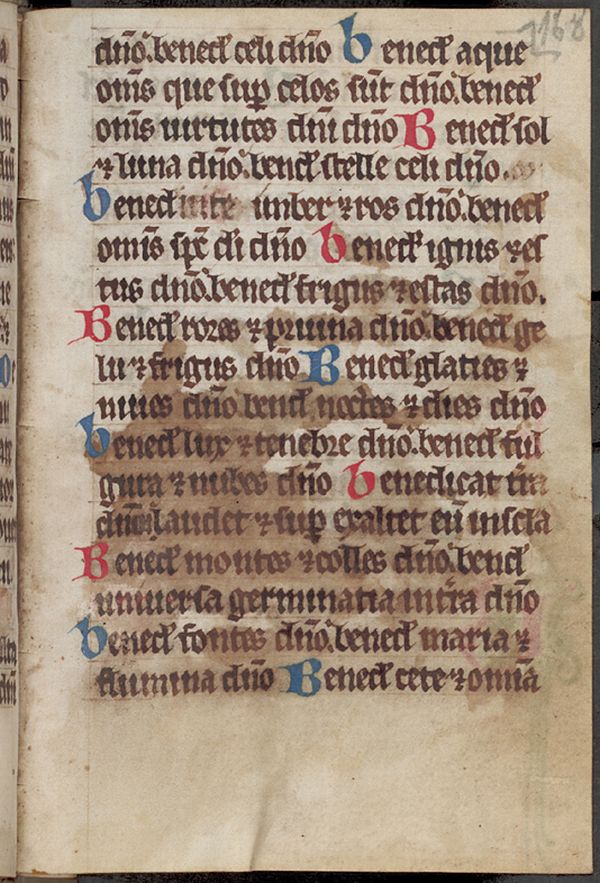 168
dn̄o. bened̄ celi dn̄o bened̄ aque
om̄s que sup̱ celos sūt dn̄o. bened̄
om̄s uirtutes dn̄i dn̄o Bened̄ sol
⁊ luna dn̄o. bened̄ stelle celi dn̄o.
benedicite ymber ⁊ ros dn̄o. bened̄
om̄s sp̄c di dn̄o bened̄ ignis ⁊ es
tus dn̄o. bened̄ frigus ⁊ estas dn̄o.
Bened̄ rores ⁊ pruina dn̄o. bened̄ ge
lu ⁊ frigus dn̄o Bened̄ glacies ⁊
niues dn̄o bened̄ noctes ⁊ dies dn̄o
bened̄ lux ⁊ tenebre dn̄o. bened̄ ful
gura ⁊ nubes dn̄o benedicat t̄ra
dn̄m laudet ⁊ sup̱ exaltet eū in sc̄la
Bened̄ montes ⁊ colles dn̄o. bened̄
uniuersa germinatia in t̄ra dn̄o
bened̄ fontes dn̄o. bened̄ maria ⁊
flumina dn̄o Bened̄ cete ⁊ omīa